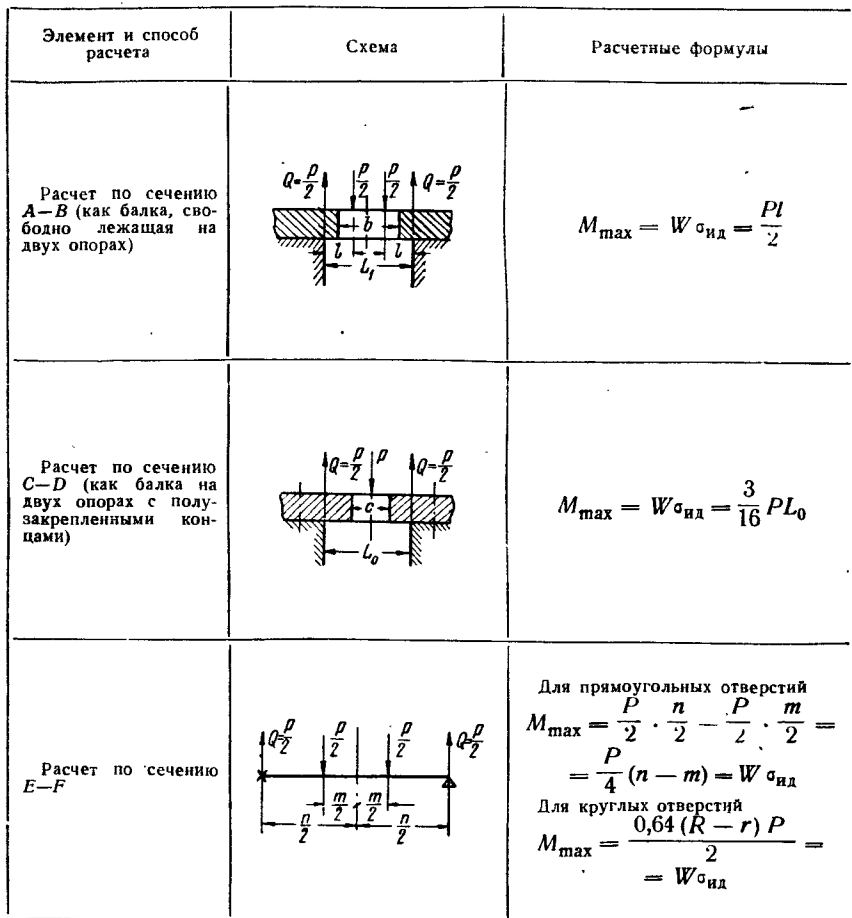 Элемент и способ
расчета
Схема
Расчетные формулы
Расчет по сечению
A—B (как балка, сво-
бодно лежащая на
двух опорах)
Q=P/2 P/2 P/2 Q=P/2
b
l l
L₁
M_max = Wσ_ид = Pl/2
Расчет по сечению
C—D (как балка на
двух опорах с полу-
закрепленными кон-
цами)
Q=P/2 P Q=P/2
c
L₀
M_max = Wσ_ид = 3/16 PL₀
Расчет по сечению
E—F
Q=P/2 P/2 P/2 Q=P/2
m/2 m/2
n/2 n/2
Для прямоугольных отверстий
M_max = P/2 · n/2 — P/2 · m/2 =
= P/4 (n — m) = Wσ_ид
Для круглых отверстий
M_max = 0,64 (R — r) P/2 =
= Wσ_ид